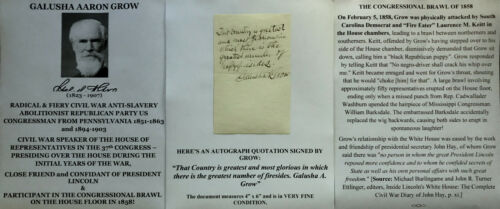 GALUSHA AARON GROW
(1823 - 1907)
RADICAL & FIERY CIVIL WAR ANTI-SLAVERY
ABOLITIONIST REPUBLICAN PARTY US
CONGRESSMAN FROM PENNSYLVANIA 1851-1863
and 1894-1903
CIVIL WAR SPEAKER OF THE HOUSE OF
REPRESENTATIVES IN THE 37th CONGRESS –
PRESIDING OVER THE HOUSE DURING THE
INITIAL YEARS OF THE WAR.
CLOSE FRIEND and CONFIDANT OF PRESIDENT
LINCOLN
&
PARTICIPANT IN THE CONGRESSIONAL BRAWL
ON THE HOUSE FLOOR IN 1858!
That Country is greatest
and most glorious in
which there is the
greatest number of
firesides.
Galusha A. Grow
HERE'S AN AUTOGRAPH QUOTATION SIGNED BY
GROW:
"That Country is greatest and most glorious in which
there is the greatest number of firesides. Galusha A.
Grow"
The document measures 4" x 6" and is in VERY FINE
CONDITION.
THE CONGRESSIONAL BRAWL OF 1858
On February 5, 1858, Grow was physically attacked by South
Carolina Democrat and "Fire Eater" Laurence M. Keitt in
the House chambers, leading to a brawl between northerners and
southerners. Keitt, offended by Grow's having stepped over to his
side of the House chamber, dismissively demanded that Grow sit
down, calling him a "black Republican puppy". Grow responded
by telling Keitt that "No negro-driver shall crack his whip over
me." Keitt became enraged and went for Grow's throat, shouting
that he would "choke [him] for that". A large brawl involving
approximately fifty representatives erupted on the House floor,
ending only when a missed punch from Rep. Cadwallader
Washburn upended the hairpiece of Mississippi Congressman
William Barksdale. The embarrassed Barksdale accidentally
replaced the wig backwards, causing both sides to erupt in
spontaneous laughter!
Grow's relationship with the White House was eased by the work
and friendship of presidential secretary John Hay, of whom Grow
said there was "no person in whom the great President Lincoln
reposed more confidence and to whom he confided secrets of
State as well as his own personal affairs with such great
freedom." [Source: Michael Burlingame and John R. Turner
Ettlinger, editors, Inside Lincoln's White House: The Complete
Civil War Diary of John Hay, p. xi.]